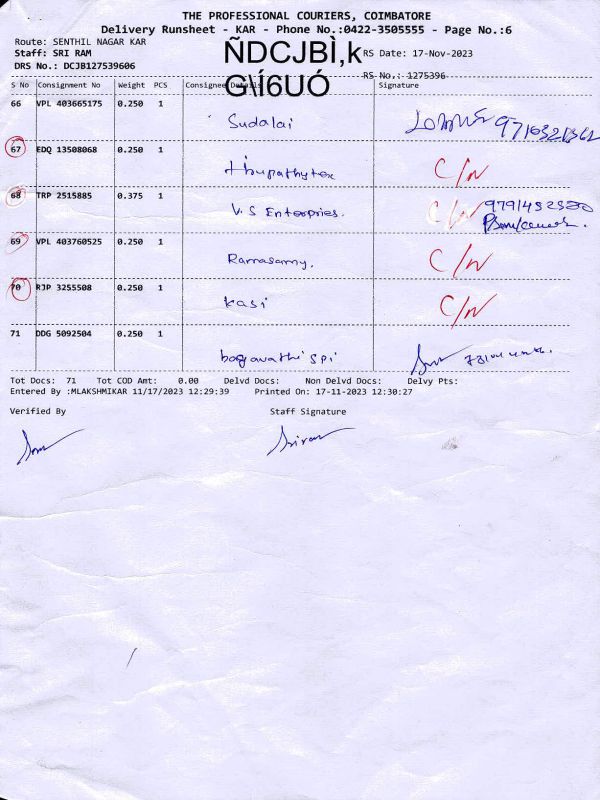 THE PROFESSIONAL COURIERS, COIMBATORE
Delivery Runsheet - KAR - Phone No.:0422-3505555 - Page No.:6
Route: SENTHIL NAGAR KAR
Staff: SRI RAM ÑDCJBÌ,k RS Date: 17-Nov-2023
DRS No.: DCJB127539606 G\Í6UÓ RS No.: 1275396
S No Consignment No Weight PCS Consignee Details Signature
66 VPL 403665175 0.250 1 Sudalai
67 EDQ 13508068 0.250 1 thirupathytex C/N
68 TRP 2515885 0.375 1 V.S Enterpries. C/N
69 VPL 403760525 0.250 1 Ramasamy. C/N
70 RJP 3255508 0.250 1 Kasi C/N
71 DDG 5092504 0.250 1 bagavathi SPi
Tot Docs: 71 Tot COD Amt: 0.00 Delvd Docs: Non Delvd Docs: Delvy Pts:
Entered By :MLAKSHMIKAR 11/17/2023 12:29:39 Printed On: 17-11-2023 12:30:27
Verified By Staff Signature
Sriram